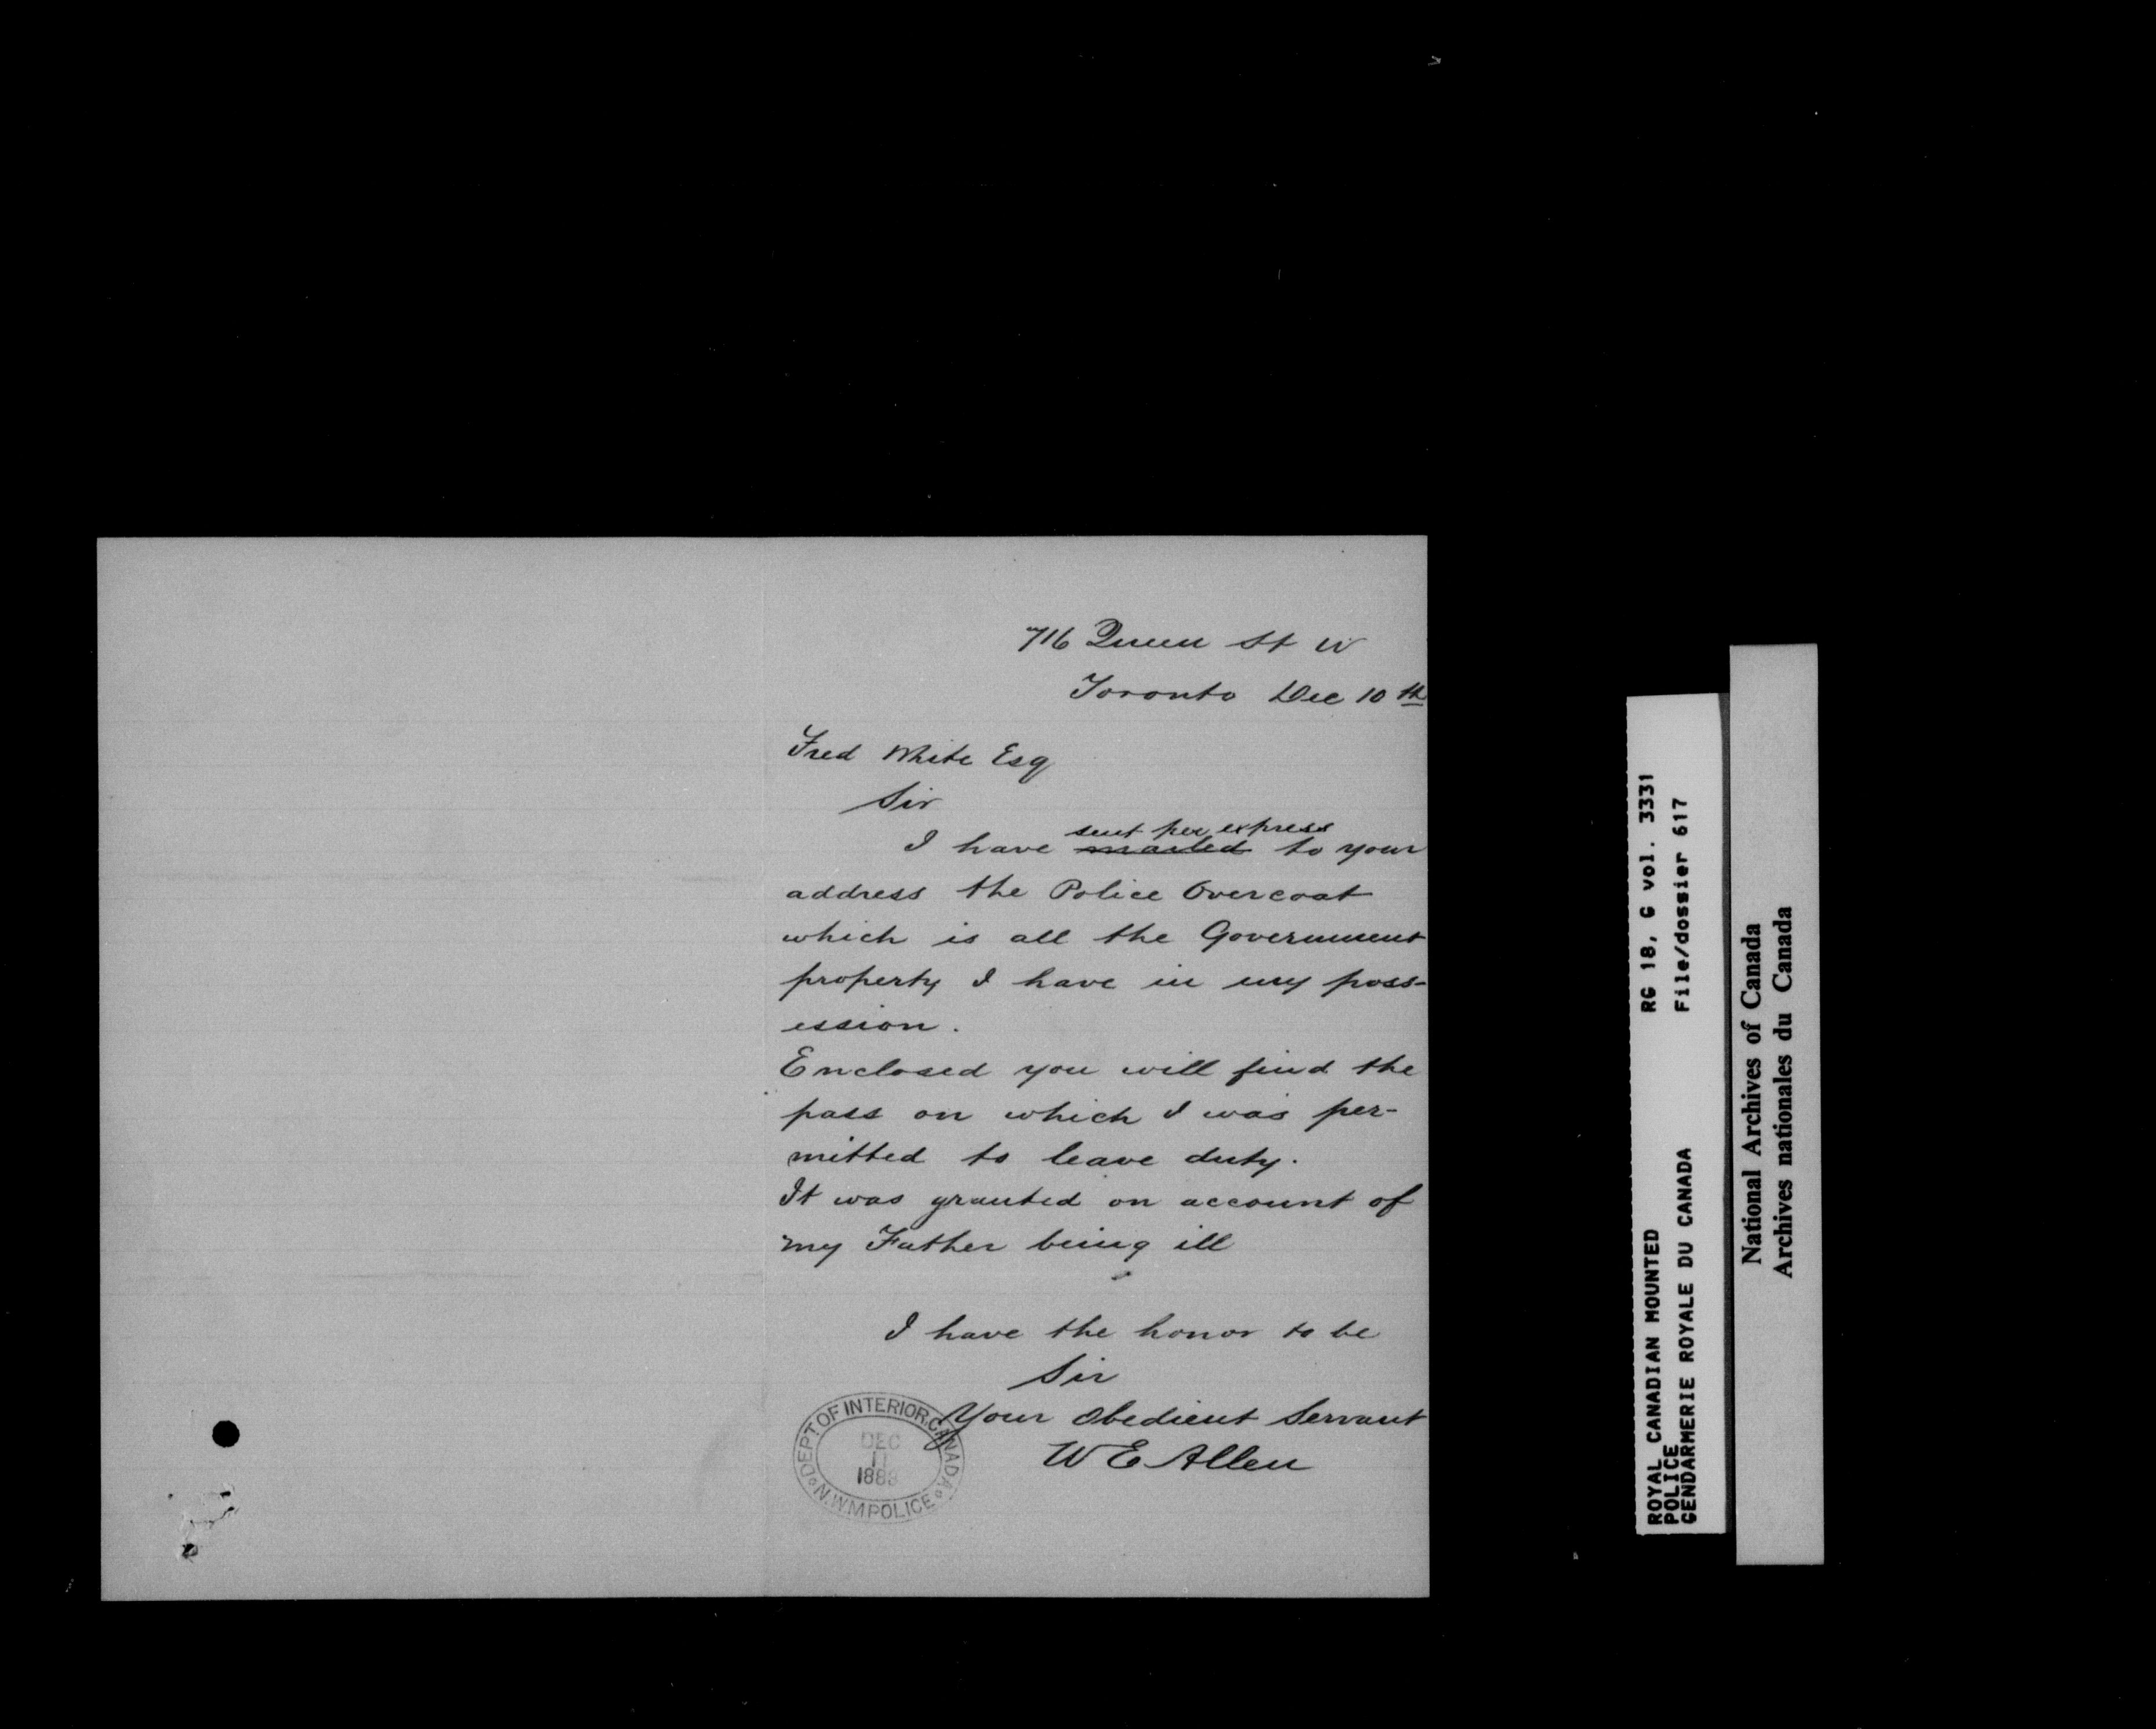 716 Queen St W
Toronto Dec 10th
Fred White Esq
Sir
sent per express
I have mailed to your
address the Police Overcoat
which is all the Government
property I have in my poss-
ession.
Enclosed you will find the
pass on which I was per-
mitted to leave duty.
It was granted on account of
my Father being ill
I have the honor to be
Sir
Your Obedient Servant
W E Allen
DEPT. OF INTERIOR, CANADA
DEC
11
188
N.W.M POLICE
ROYAL CANADIAN MOUNTED RG 18, G vol. 3331
POLICE
GENDARMERIE ROYALE DU CANADA File/dossier 617
National Archives of Canada
Archives nationales du Canada